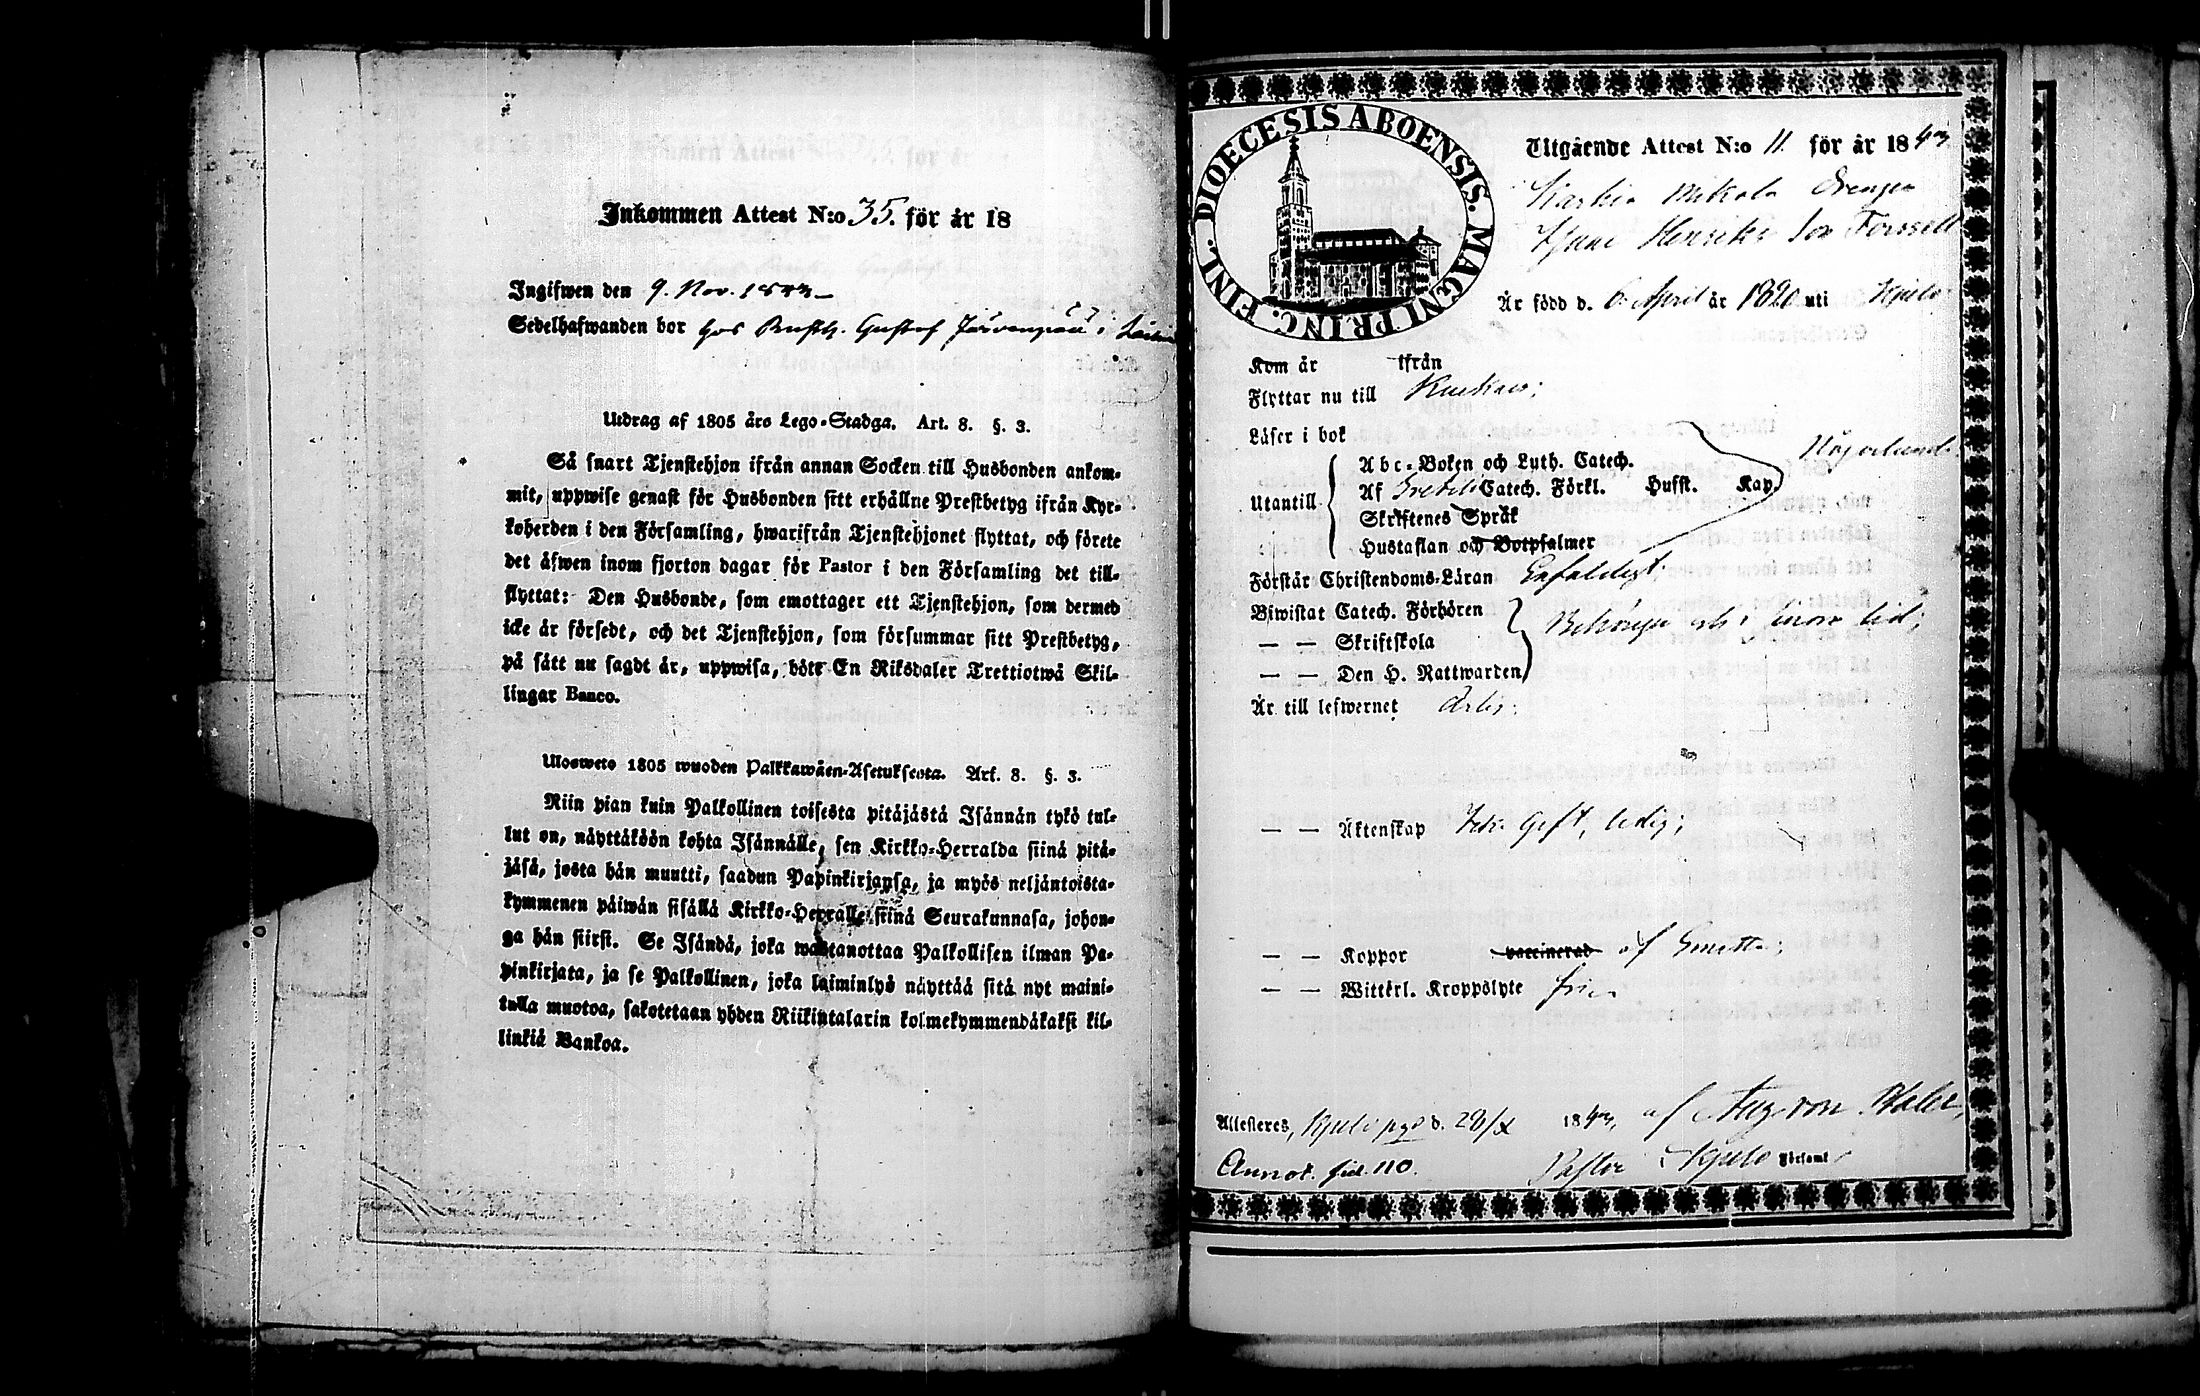 Inkommen Attest N:o 35. för år 18
Ingifwen den 9. Nov. 1843
Sedelhafwanden bor hos Gustaf Järvenpää i
Utdrag af 1805 års Lego-Stadga. Art. 8. §. 3.
Så snart Tjenstehjon ifrån annan Socken till Husbonden ankom-
mit, uppwise genast för Husbonden sitt erhållne Prestbetyg ifrån Kyr-
koherden i den Församling, hwarifrån Tjenstehjonet flyttat, och förete
det äfwen inom fjorton dagar för Pastor i den Församling det till-
flyttat: Den Husbonde, som emottager ett Tjenstehjon, som dermed
icke är försedt, och det Tjenstehjon, som försummar sitt Prestbetyg,
på sätt nu sagdt är, uppwisa, böte En Riksdaler Trettiotwå Skil-
lingar Banco.
Ulosweto 1805 wuoden Palkkawäen-Asetuksesta. Art. 8. §. 3.
Niin pian kuin Palkollinen toisesta pitäjästä Isännän tykö tul-
lut on, näyttäköön kohta Isännälle, sen Kirkko-Herralda siinä pitä-
jäsä, josta hän muutti, saadun Papinkirjansa, ja myös neljäntoista-
kymmenen päiwän sisällä Kirkko-Herralle siinä Seurakunnasa, johon-
ga hän siirsi. Se Isändä, joka wastanottaa Palkollisen ilman Pa-
pinkirjata, ja se Palkollinen, joka laiminlyö näyttää sitä nyt maini-
tulla muotoa, sakotetaan yhden Riikintalarin kolmekymmendäkaksi kil-
linkiä Bankoa.
DIOECESIS ABOENSIS. MAGNI PRINC. FINL.
Utgående Attest N:o 11. för år 1843
Mikola Drengen
Isaac Henriks Son Forssell
Är född d. 6 April år 1820 uti Kjulo
Kom år ifrån
Flyttar nu till
Läser i bok
Utantill
Abc-Boken och Luth. Catech.
Af Svebili Catech. Förkl. Hufst. Kap.
Skriftenes Språk
Hustaflan och Botpsalmer
Förstår Christendoms-Läran Enfaldigt
Biwistat Catech. Förhören
— — Skriftskola
— — Den H. Nattwarden
Behörigen och i inom tid;
Är till lefwernet Ärlig;
— — Äktenskap Icke Gift, ledig;
— — Koppor vaccinerad af Smitta;
— — Witterl. Kroppslyte fri.
Attesteras, Kjulo pgd d. 28/X 1843, af Aug. von Pfaler,
Annot. fol. 110. Pastor i Kjulo Församl.